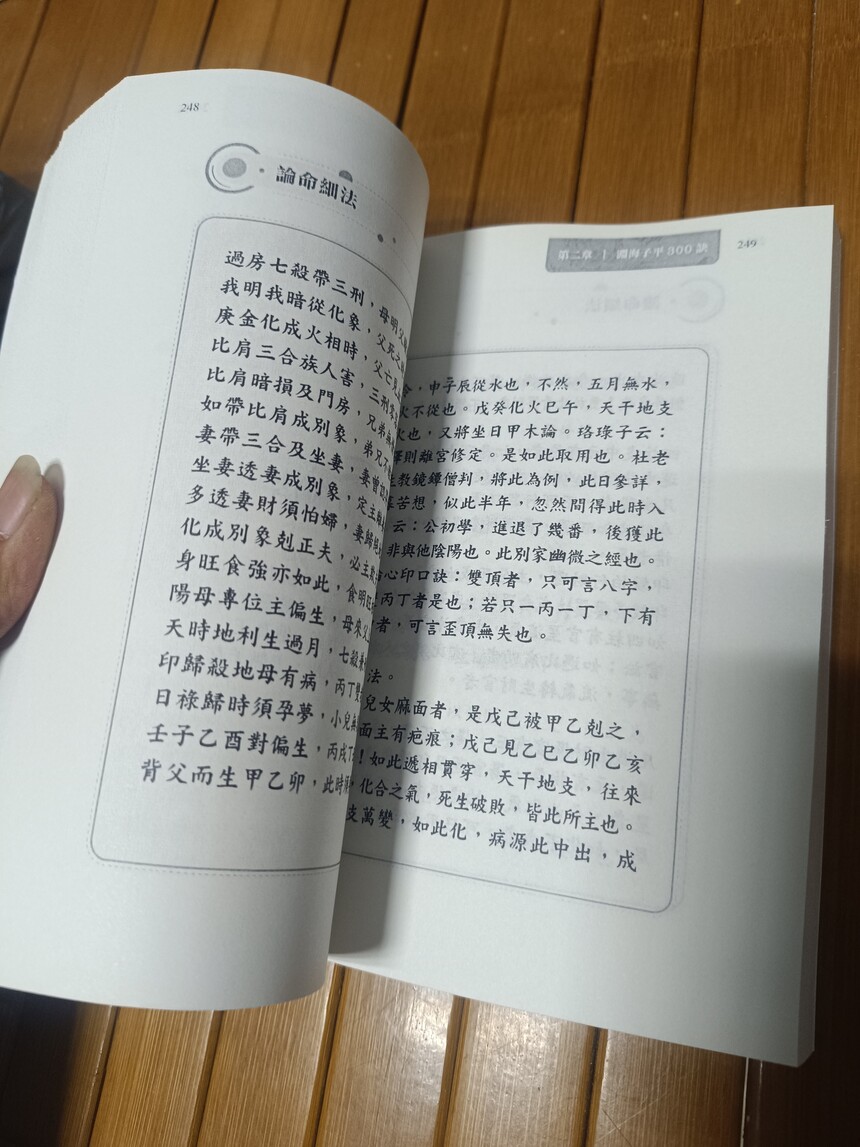 248
論命細法
過房七殺帶三刑，母明父
我明我暗從化象，父死之
庚金化成火相時，父亡見
比肩三合族人害，三刑
比肩暗損及門房，兄弟無
如帶比肩成別象，弟兄不
妻帶三合及坐妻，妻曾
坐妻透妻成別象，定主
多透妻財須怕婦，妻歸
化成別象剋正夫，必主
身旺食強亦如此，食明
陽母專位主偏生，母來父
天時地利生過月，七殺
印歸殺地母有病，丙丁雙
日祿歸時須孕夢，小兒無
壬子乙酉對偏生，丙戌丁
背父而生甲乙卯，此時
第二章 | 淵海子平300訣
249
，申子辰從水也，不然，五月無水，
火不從也。戊癸化火巳午，天干地支
火也，又將坐日甲木論。珞琭子云：
則離宮修定。是如此取用也。杜老
教鏡鐔僧判，將此為例，此日參詳，
苦想，似此半年，忽然間得此時入
云：公初學，進退了幾番，後獲此
非與他陰陽也。此別家幽微之經也。
心印口訣：雙頂者，只可言八字，
丙丁者是也；若只一丙一丁，下有
者，可言歪頂無失也。
法。
兒女麻面者，是戊己被甲乙剋之，
面主有疤痕；戊己見乙巳乙卯乙亥
！如此遞相貫穿，天干地支，往來
，化合之氣，死生破敗，皆此所主也。
支萬變，如此化，病源此中出，成